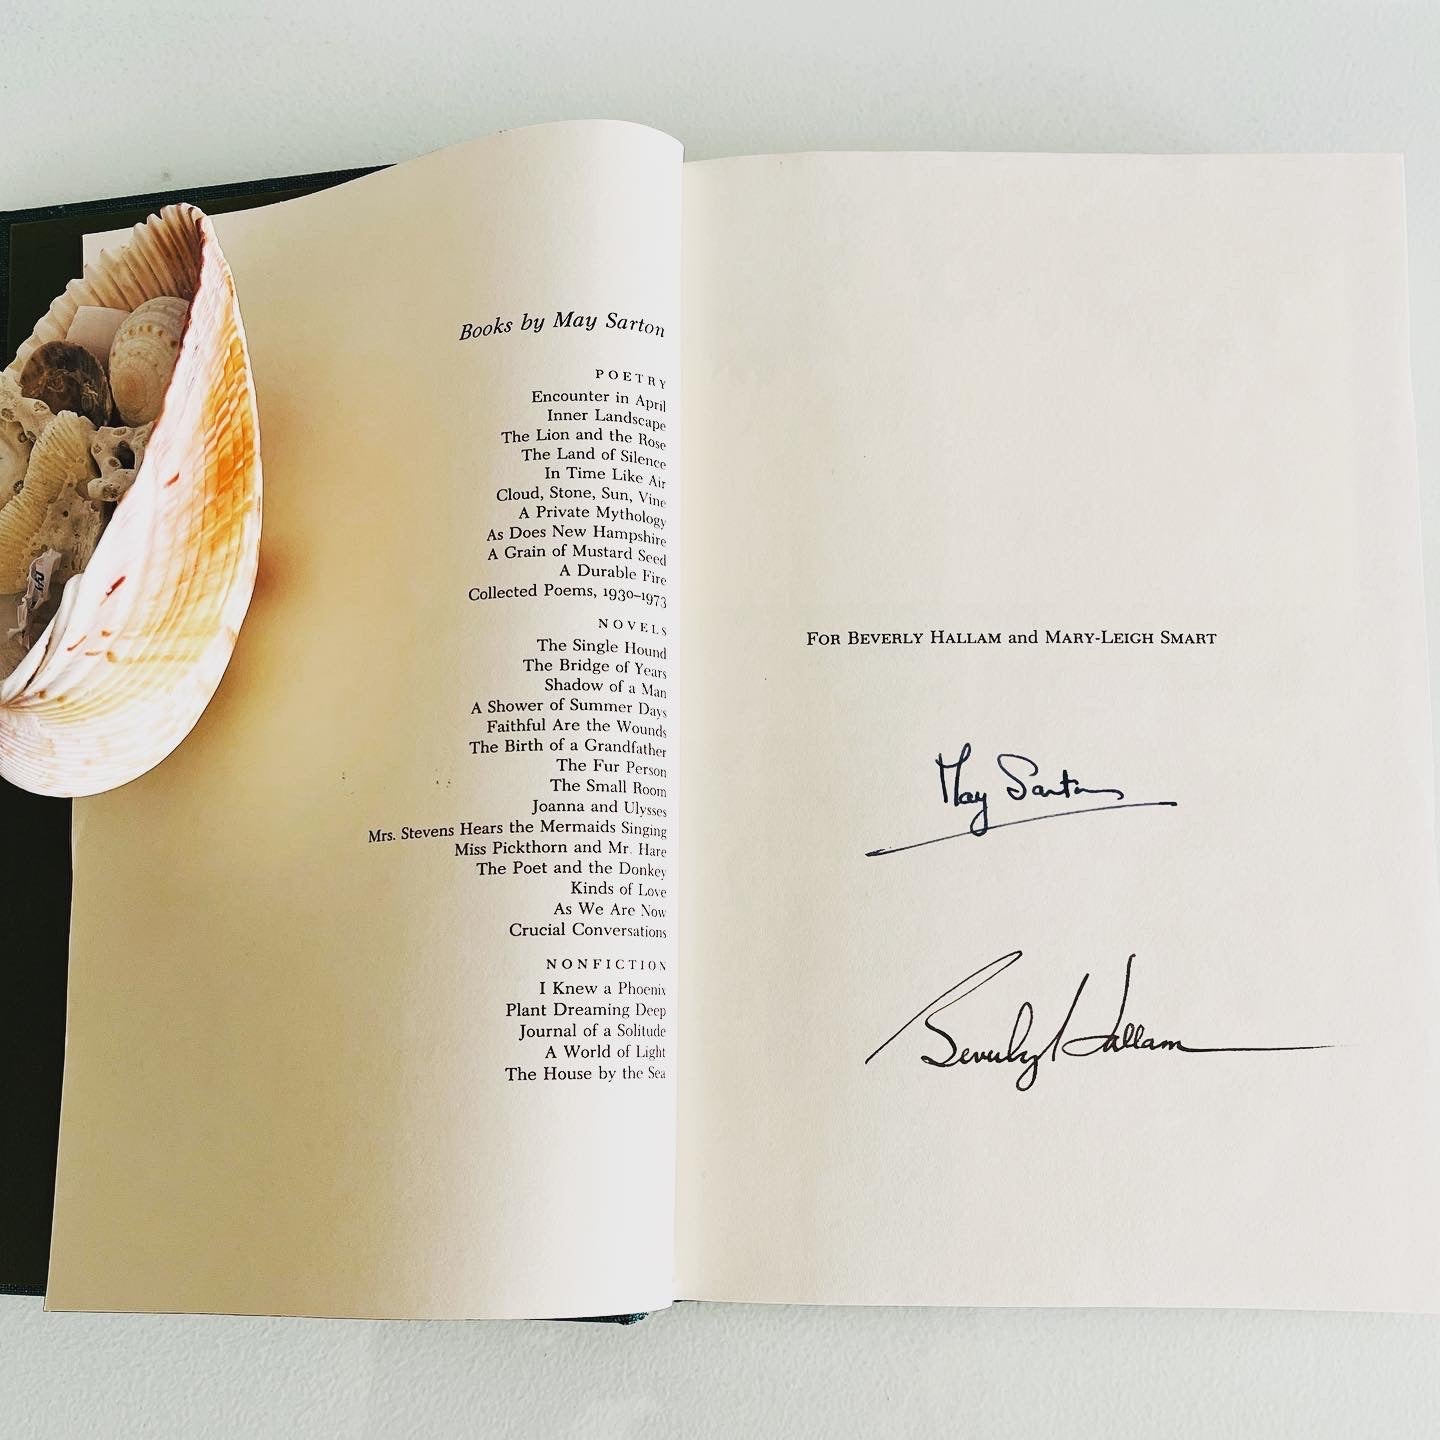 Books by May Sarton
POETRY
Encounter in April
Inner Landscape
The Lion and the Rose
The Land of Silence
In Time Like Air
Cloud, Stone, Sun, Vine
A Private Mythology
As Does New Hampshire
A Grain of Mustard Seed
A Durable Fire
Collected Poems, 1930–1973
NOVELS
The Single Hound
The Bridge of Years
Shadow of a Man
A Shower of Summer Days
Faithful Are the Wounds
The Birth of a Grandfather
The Fur Person
The Small Room
Joanna and Ulysses
Mrs. Stevens Hears the Mermaids Singing
Miss Pickthorn and Mr. Hare
The Poet and the Donkey
Kinds of Love
As We Are Now
Crucial Conversations
NONFICTION
I Knew a Phoenix
Plant Dreaming Deep
Journal of a Solitude
A World of Light
The House by the Sea
FOR BEVERLY HALLAM and MARY-LEIGH SMART
May Sarton
Beverly Hallam